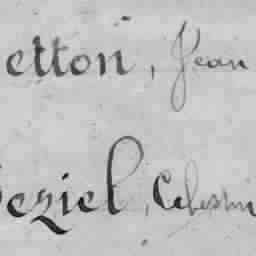 etton, Jean
eziel, Celestin